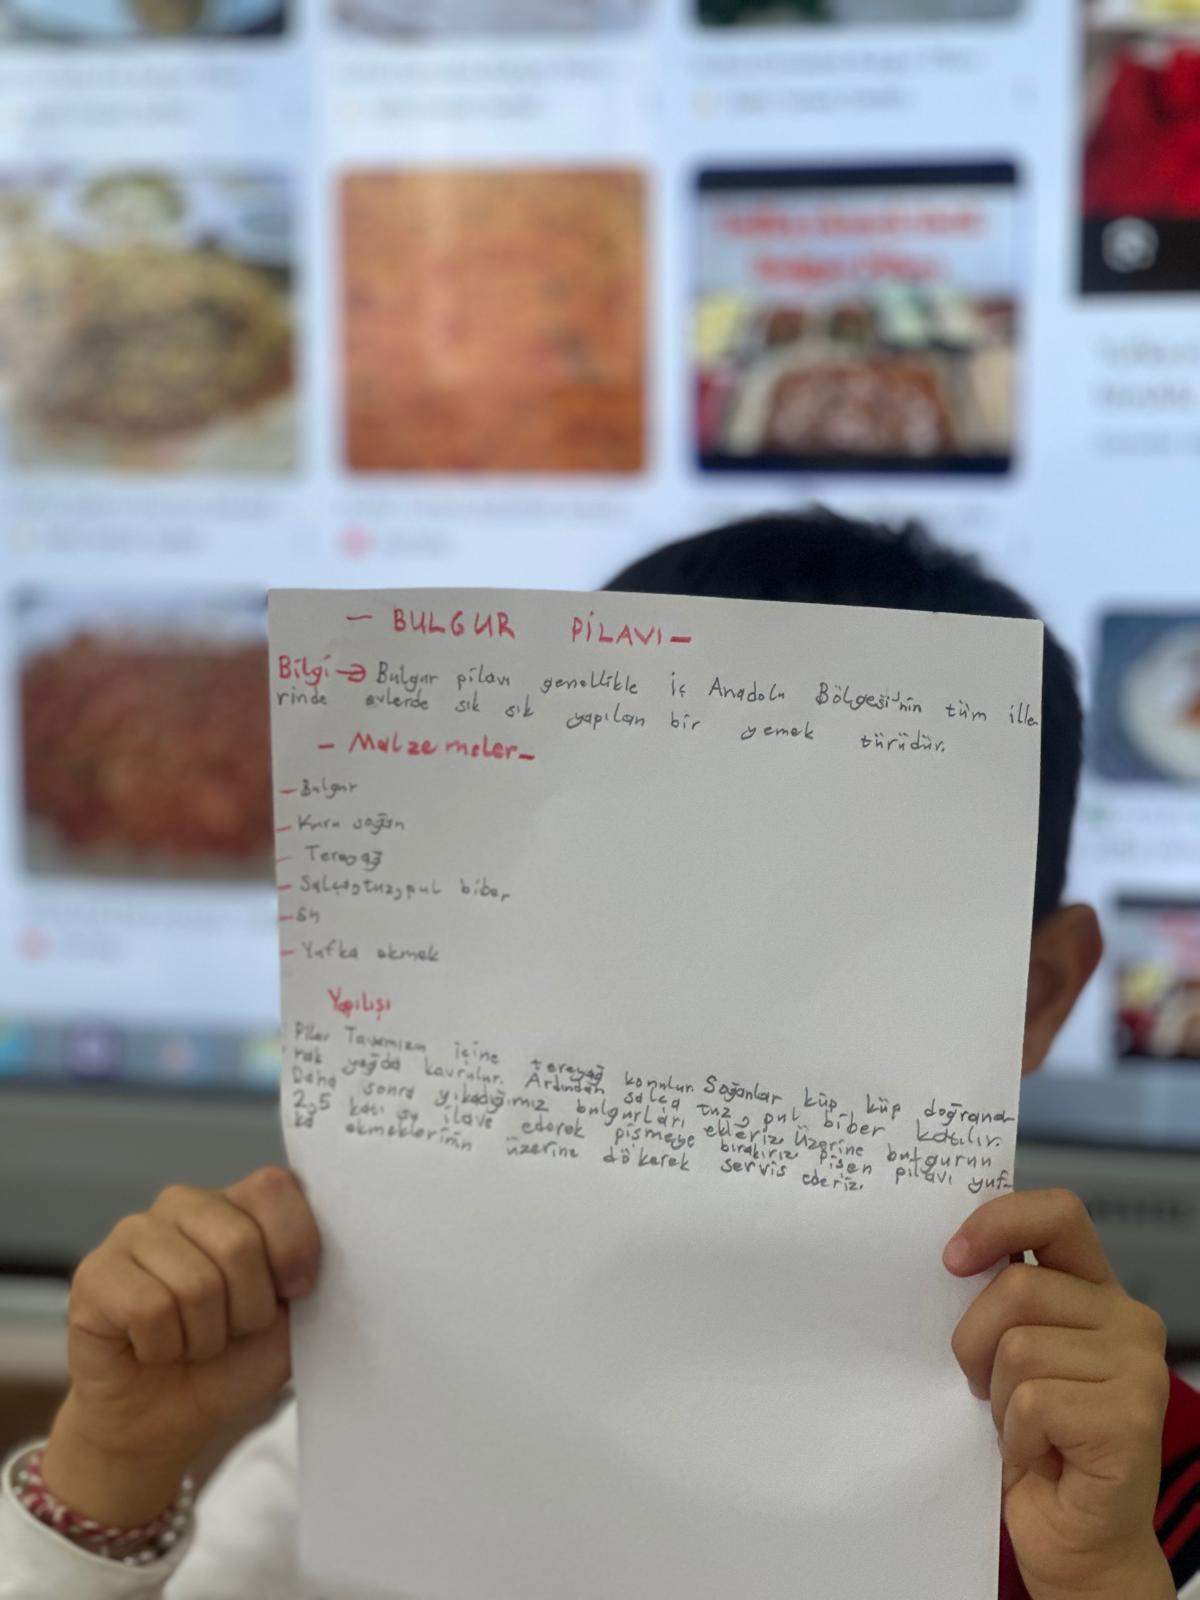 - BULGUR PİLAVI -
Bilgi → Bulgur pilavı genellikle İç Anadolu Bölgesi'nin tüm ille
rinde evlerde sık sık yapılan bir yemek türüdür.
- Malzemeler -
- Bulgur
- Kuru soğan
- Tereyağ
- Salça, tuz, pul biber
- Su
- Yufka ekmek
Yapılışı
Pilav Tavamızın içine tereyağ konulur. Soğanlar küp küp doğrana-
rak yağda kavrulur. Ardından salça tuz, pul biber katılır.
Daha sonra yıkadığımız bulgurları ekleriz. Üzerine bulgurun
2,5 katı su ilave ederek pişmeye bırakırız. pişen pilavı yuf-
ka ekmeklerinin üzerine dökerek servis ederiz.